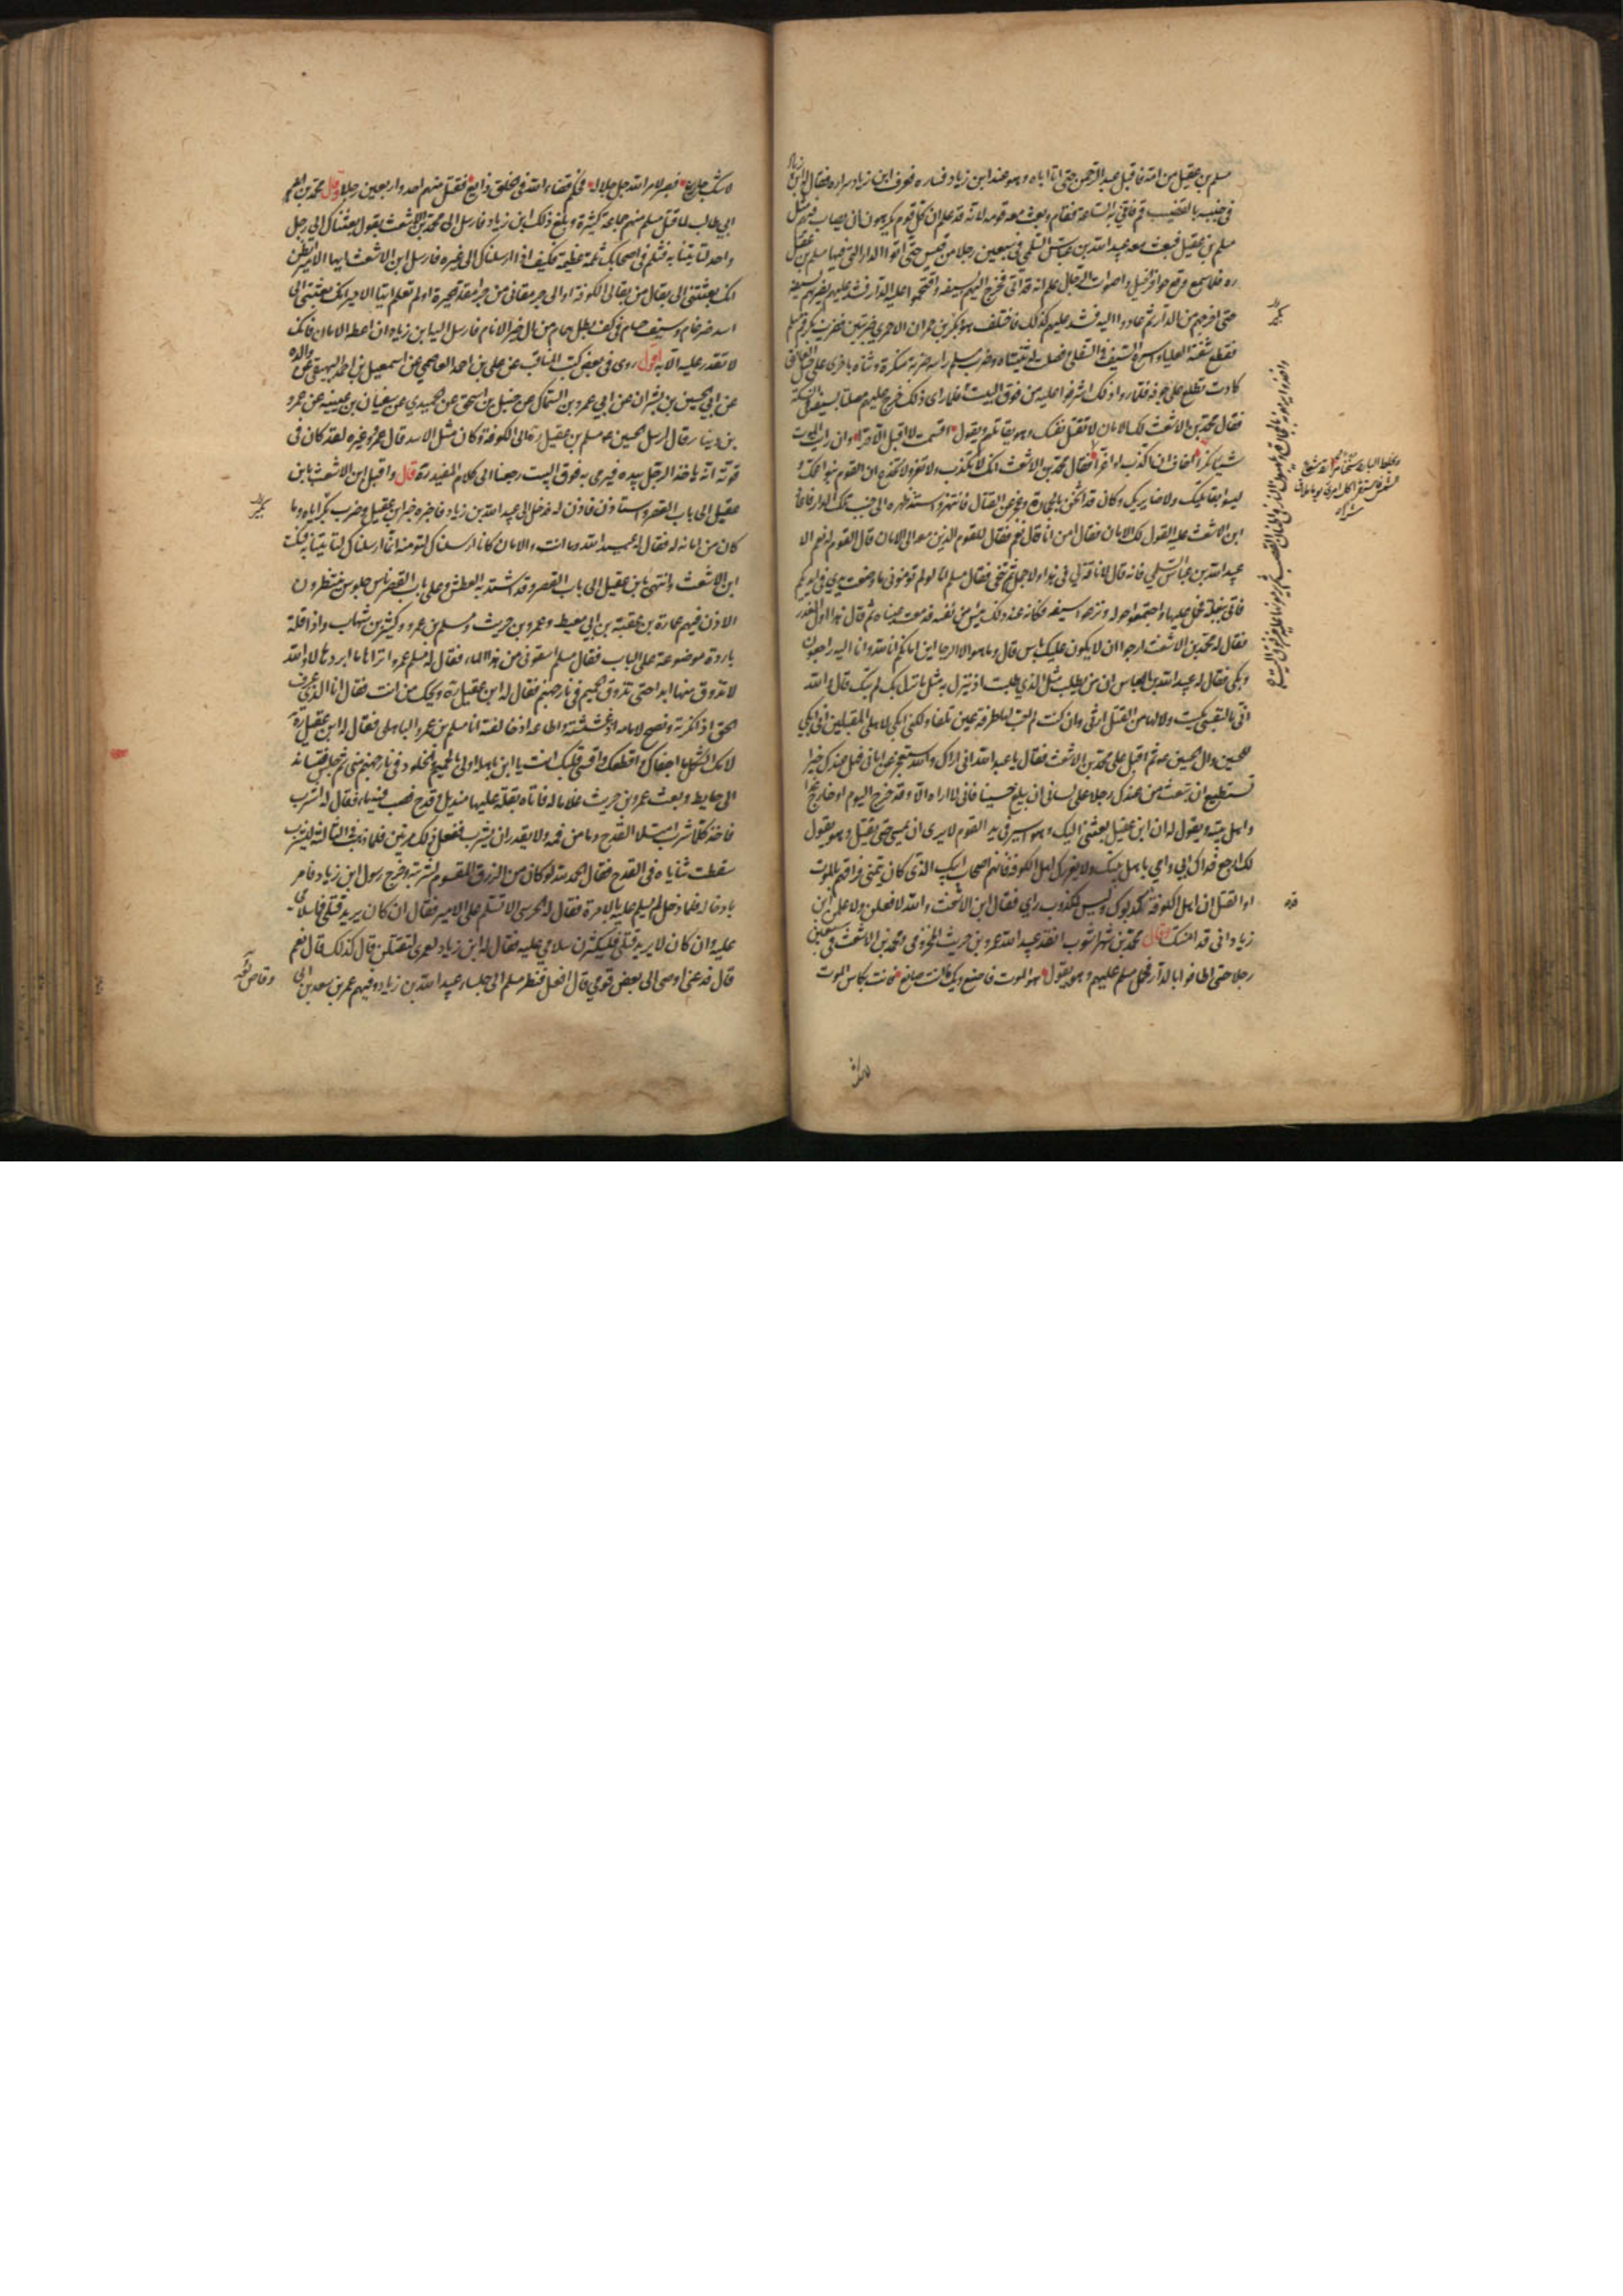 مسلم بن عقيل من امنه فاقبل عبد الرحمن حتى اتا اباه وهو عند ابن زياد فساره فعرف ابن زياد سراره فقال له ابن زياد
في جنبه بالقضيب قم فاتني به الساعة فقام وبعث معه قومه لانه قد علم ان كل قوم يكرهون ان يصاب فيهم مثل
مسلم بن عقيل فبعث معه عبيد الله بن عباس السلمي في سبعين رجلا من قيس حتى اتوا الدار التي فيها مسلم بن عقيل
ره فلما سمع وقع حوافر الخيل واصوات الرجال علم انه قد اتي فخرج اليهم بسيفه واقتحموا عليه الدار فشد عليهم يضربهم بسيفه
حتى اخرجهم من الدار ثم عادوا اليه فشد عليهم كذلك فاختلف هو وبكر بن حمران الاحمري ضربتين فضرب بكر فم مسلم
فقطع شفته العليا واسرع السيف في السفلى وفصلت له ثنيتاه وضرب مسلم راسه ضربة منكرة وثناه باخرى على حبل العاتق
كادت تطلع على جوفه فلما راوا ذلك اشرفوا عليه من فوق البيت فلما راى ذلك خرج عليهم مصلتا بسيفه في السكة
فقال محمد بن الاشعث لك الامان لا تقتل نفسك وهو يقاتلهم ويقول اقسمت لا اقتل الا حرا وان رايت الموت
شيئا نكرا اخاف ان اكذب او اغرا فقال محمد بن الاشعث انك لا تكذب ولا تغر ولا تخدع ان القوم بنو عمك و
ليسوا بقاتليك ولا ضاريك وكان قد اثخن بالحجارة وعجز عن القتال فانتهز واستند ظهره الى جنب تلك الدار فاعاد
ابن الاشعث عليه القول لك الامان فقال امن انا قال نعم فقال للقوم الذين معه الي الامان قال القوم له نعم الا
عبيد الله بن عباس السلمي فانه قال لا ناقة لي في هذا ولا جمل ثم تنحى فقال مسلم اما لو لم تؤمنوني ما وضعت يدي في ايديكم
فاتي ببغلة فحمل عليها واجتمعوا حوله ونزعوا سيفه وكانه عند ذلك يئس من نفسه فدمعت عيناه ثم قال هذا اول الغدر
فقال له محمد بن الاشعث ارجو ان لا يكون عليك باس قال وما هو الا الرجا اين امانكم انا لله وانا اليه راجعون
وبكى فقال له عبيد الله بن العباس ان من يطلب مثل الذي طلبت اذ نزل به مثل ما نزل بك لم يبك قال والله
اني ما لنفسي بكيت ولا لها من القتل ارثي وان كنت لم احب لها طرفة عين تلفا ولكني ابكي لاهلي المقبلين اني ابكي
للحسين وال الحسين ثم اقبل على محمد بن الاشعث فقال يا عبد الله اني اراك والله ستعجز عن اماني فهل عندك خير
تستطيع ان تبعث من عندك رجلا على لساني ان يبلغ حسينا فاني لا اراه الا وقد خرج اليوم او خارج غدا
واهل بيته ويقول له ان ابن عقيل بعثني اليك وهو اسير في يد القوم لا يرى ان يمسي حتى يقتل وهو يقول
لك ارجع فداك ابي وامي باهل بيتك ولا يغررك اهل الكوفة فانهم اصحاب ابيك الذي كان يتمنى فراقهم بالموت
او القتل ان اهل الكوفة قد كذبوك وليس لمكذوب راي فقال ابن الاشعث والله لافعلن ولاعلمن ابن
زياد اني قد امنتك وقال محمد بن شهراشوب انفذ عبيد الله عمرو بن حريث المخزومي ومحمد بن الاشعث في سبعين
رجلا حتى اطافوا بالدار فحمل مسلم عليهم وهو يقول هو الموت فاصنع ويك ما انت صانع فانت بكاس الموت
لا شك جارع فصبر لامر الله جل جلاله فحكم قضاء الله في الخلق ذايع فقتل منهم احد واربعين رجلا وقال محمد بن
ابي طالب لما قتل مسلم منهم جماعة كثيرة وبلغ ذلك ابن زياد فارسل الى محمد بن الاشعث يقول بعثناك الى رجل
واحد لتاتينا به فثلم في اصحابك ثلمة عظيمة فكيف اذا ارسلناك الى غيره فارسل ابن الاشعث ايها الامير اتظن
انك بعثتني الى بقال من بقالي الكوفة او الى جرمقاني من جرامقة الحيرة اولم تعلم ايها الامير انك بعثتني الى
اسد ضرغام وسيف حسام في كف بطل همام من ال خير الانام فارسل اليه ابن زياد ان اعطه الامان فانك
لا تقدر عليه الا به اقول روى في بعض كتب المناقب عن علي بن احمد العاصمي عن اسمعيل بن احمد البيهقي عن والده
عن ابي الحسين بن بشران عن ابي عمرو بن السماك عن حنبل بن اسحق عن الحميدي عن سفيان بن عيينه عن عمرو
بن دينار قال ارسل الحسين ع مسلم بن عقيل ره الى الكوفة وكان مثل الاسد قال عمرو وغيره لقد كان في
قوته انه ياخذ الرجل بيده فيرمى به فوق البيت رجعنا الى كلام المفيد ره قال واقبل ابن الاشعث بابن
عقيل الى باب القصر واستاذن فاذن له فدخل الى عبيد الله بن زياد فاخبره خبر ابن عقيل وضرب بكر اياه وما
كان من امانه له فقال له عبيد الله وما انت والامان كانا ارسلناك لتؤمنه انما ارسلناك لتاتينا به فسكت
ابن الاشعث وانتهى بابن عقيل الى باب القصر وقد اشتد به العطش وعلى باب القصر ناس جلوس ينتظرون
الاذن فيهم عمارة بن عقبة بن ابي معيط وعمرو بن حريث ومسلم بن عمرو وكثير بن شهاب واذا قلة
باردة موضوعة على الباب فقال مسلم اسقوني من هذا الماء فقال له مسلم بن عمرو اتراها ما ابردها لا والله
لا تذوق منها ابدا حتى تذوق الحميم في نار جهنم فقال له ابن عقيل ره ويحك من انت فقال انا الذي عرف
الحق اذ انكرته ونصح لامامه اذ غششته واطاعه اذ خالفته انا مسلم بن عمرو الباهلي فقال له ابن عقيل ره
لامك الثكل ما اجفاك واقطعك واقسى قلبك انت يا ابن باهلة اولى بالحميم والخلود في نار جهنم مني ثم جلس فتساند
الى حايط وبعث عمرو بن حريث غلاما له فاتاه بقلة عليها منديل وقدح فصب فيه ماء فقال له اشرب
فاخذ كلما شرب امتلا القدح دما من فمه ولا يقدر ان يشرب ففعل ذلك مرتين فلما ذهب في الثالثة ليشرب
سقطت ثناياه في القدح فقال الحمد لله لو كان من الرزق المقسوم لشربته وخرج رسول ابن زياد فامر
بادخاله فلما دخل لم يسلم عليه بالامرة فقال له الحرسي الا تسلم على الامير فقال ان كان يريد قتلي فما سلامي
عليه وان كان لا يريد قتلي فليكثرن سلامي عليه فقال له ابن زياد لعمري لتقتلن قال كذلك قال نعم
قال فدعني اوصي الى بعض قومي قال افعل فنظر مسلم الى جلساء عبيد الله بن زياد وفيهم عمر بن سعد بن ابي
وقاص